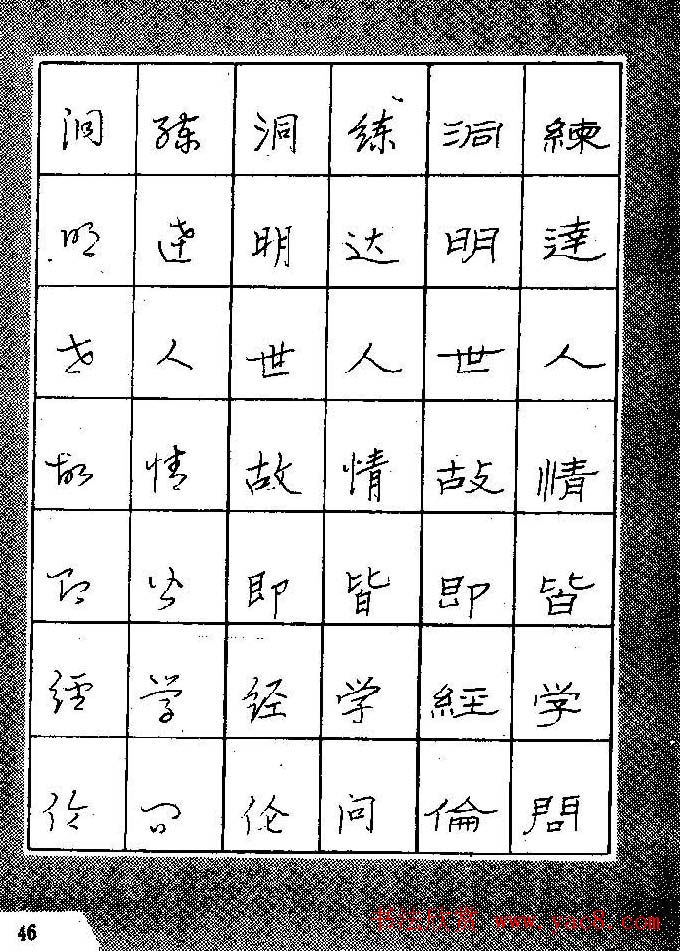 練達人情皆学問
洞明世故即經倫
练达人情皆学问
洞明世故即经伦
练達人情皆学问
洞明世故即經伦
46
书法欣赏 www.yac8.com